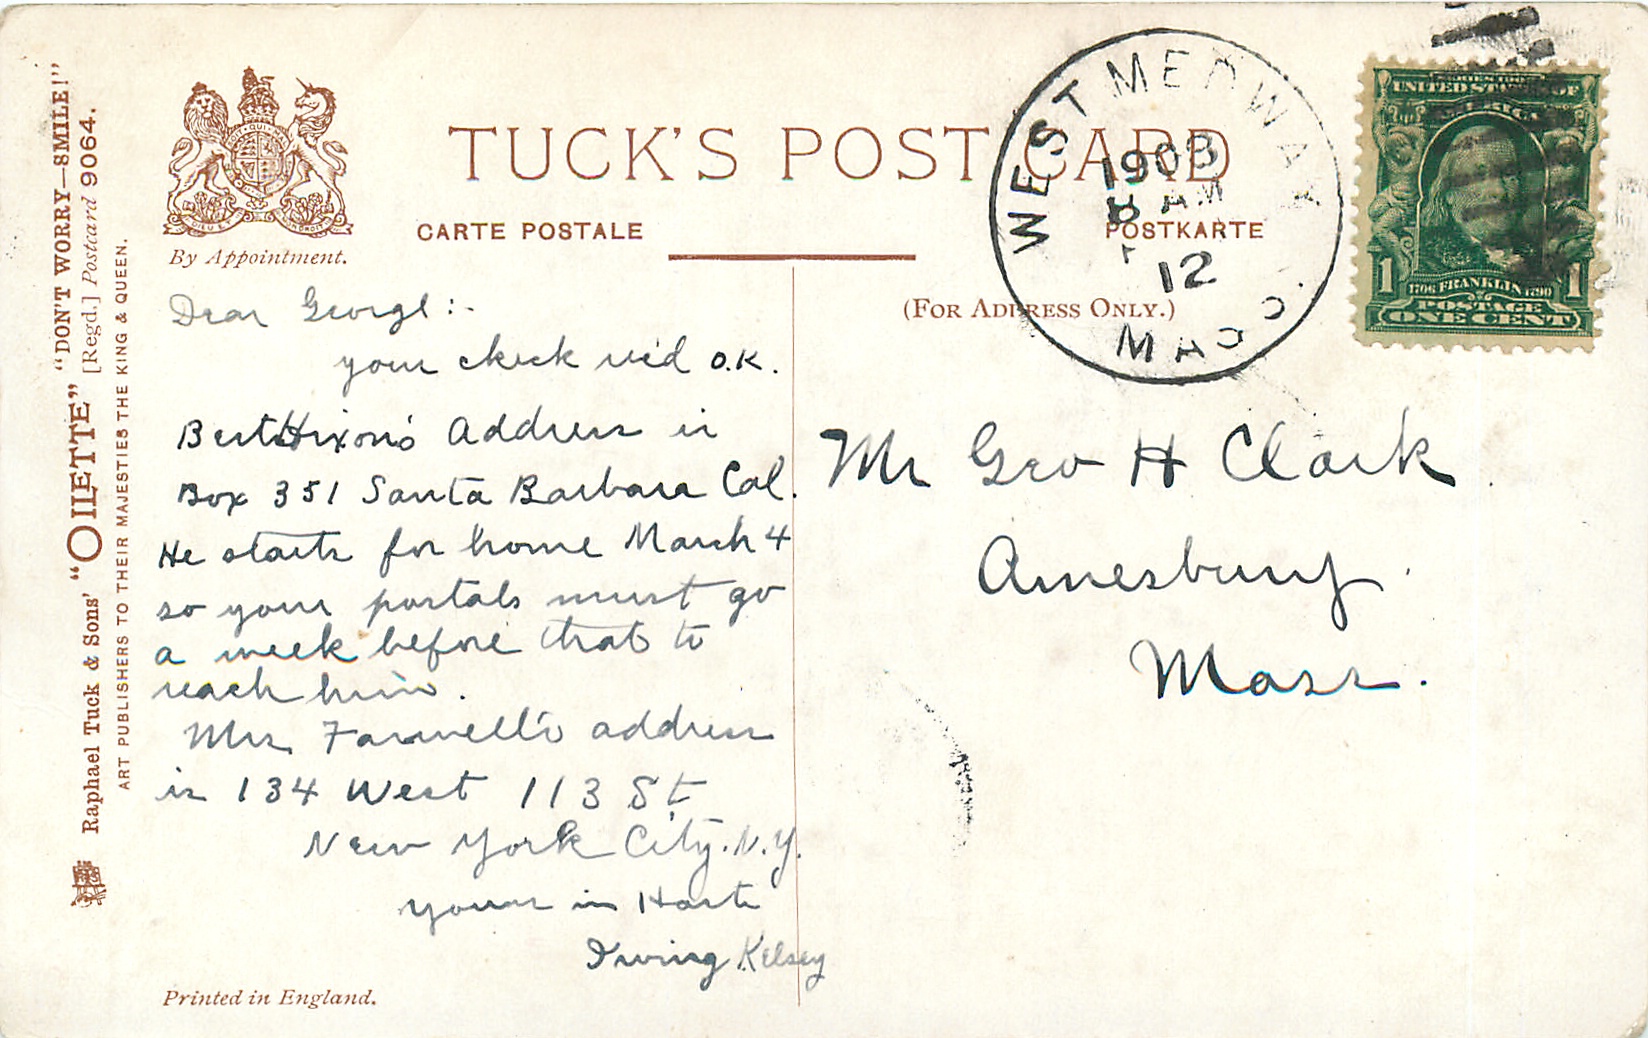 "DON'T WORRY—SMILE!"
Raphael Tuck & Sons' "OILETTE" [Regd.] Postcard 9064.
ART PUBLISHERS TO THEIR MAJESTIES THE KING & QUEEN.
By Appointment.
TUCK'S POST CARD
CARTE POSTALE
POSTKARTE
(FOR ADDRESS ONLY.)
WEST MEDWAY
1908
8 AM
12
MASS.
UNITED STATES OF
AMERICA
1706 FRANKLIN 1790
1 1
POSTAGE
ONE CENT
Dear George:-
your check rec'd O.K.
Bert Hixon's Address is
Box 351 Santa Barbara Cal.
He starts for home March 4
so your postals must go
a week before that to
reach him.
Mrs Farwell's address
is 134 West 113 St
New York City. N.Y.
yours in Haste
Irving Kelsey
Mr Geo H Clark
Amesbury
Mass.
Printed in England.